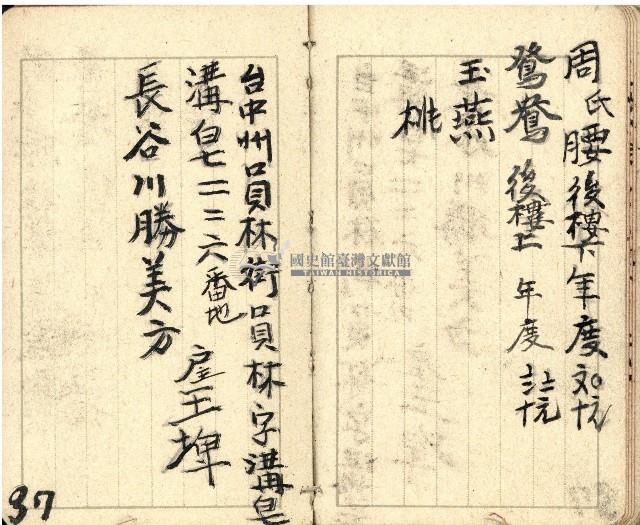 周氏腰後樓下年度
鴛鴦後樓上年度
玉燕
桃
台中州員林街員林字溝皂
溝皂一二六番地
長谷川勝美方
國史館臺灣文獻館
TAIWAN HISTORICA
37